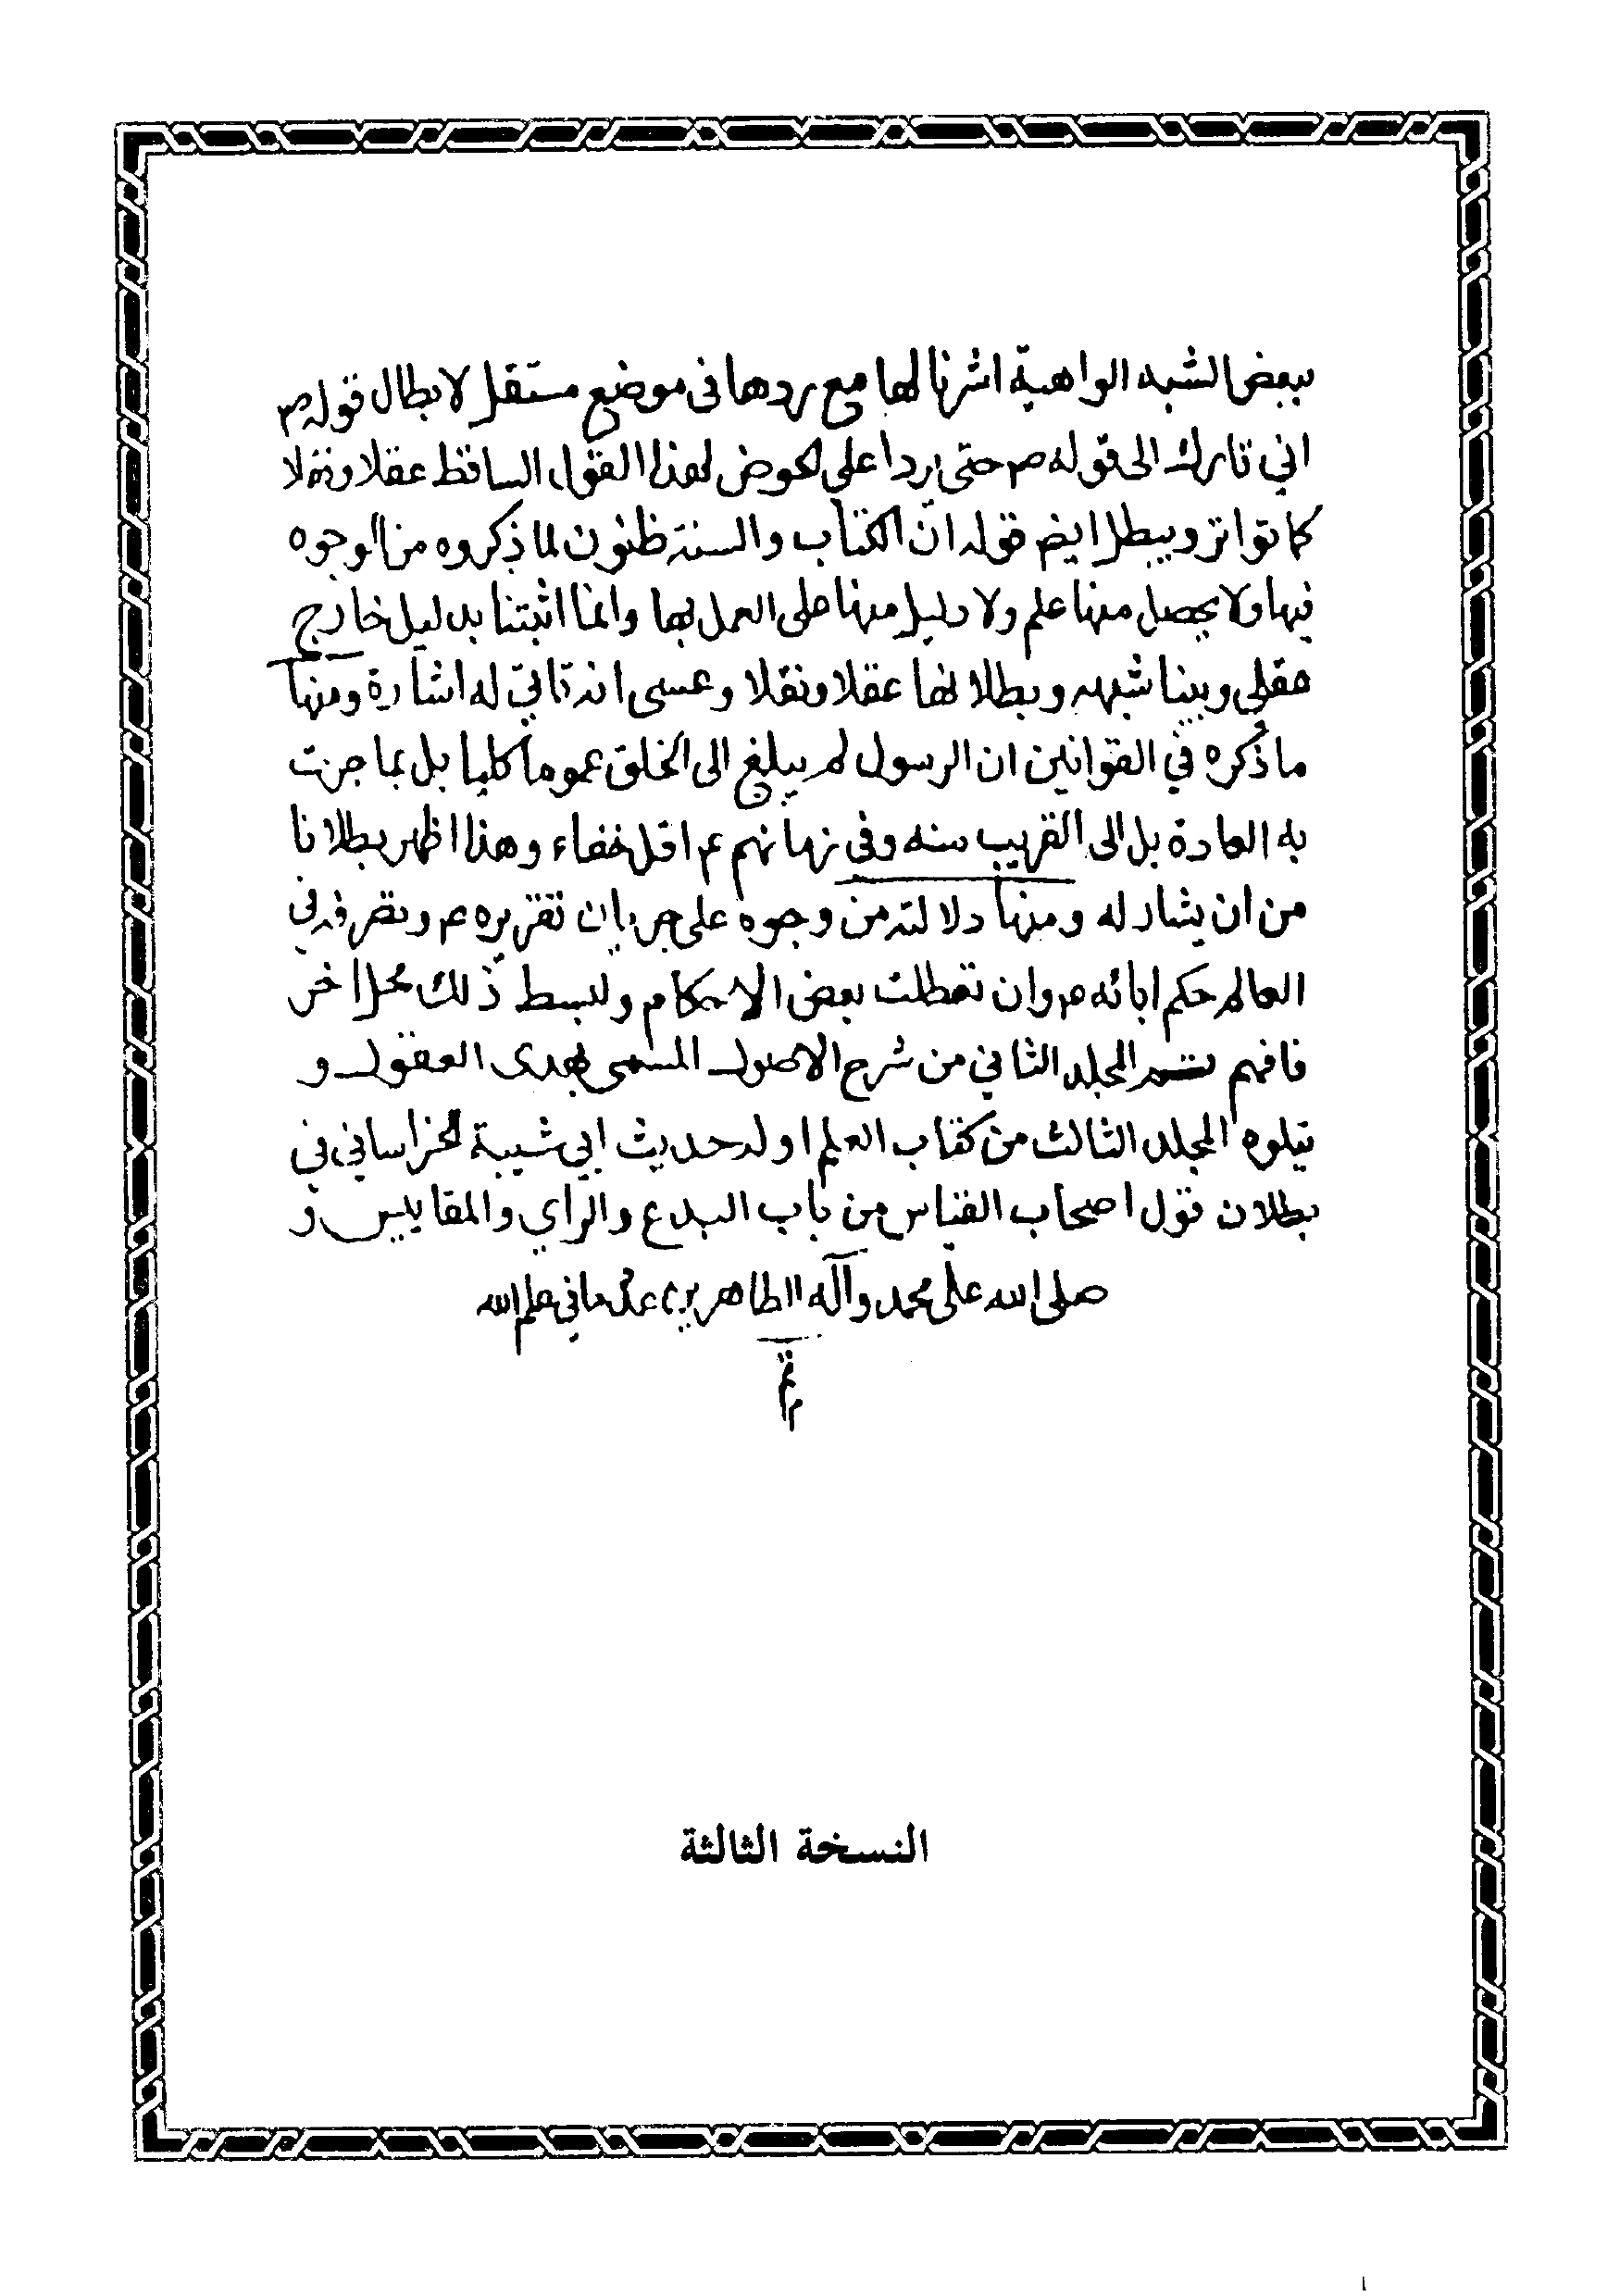 ببعض الشبه الواهية اشرنا لها مع ردها فى موضع مستقل لابطال قوله ص
اني تارك الى قوله ص حتى يردا على الحوض لهذا القول الساقط عقلا ونقلا
كما تواتر ويبطل ايضم قوله انّ الكتاب والسنة ظنون لما ذكروه من الوجوه
فيها ولا يحصل منها علم ولا دليل منها على العمل بها وانما اثبتنا بدليل خارج
عقلى وبينا شبهه وبطلانها عقلا ونقلا وعسى انه تاتى له اشارة ومنها
ما ذكره في القوانين ان الرسول لم يبلغ الى الخلق عموما كليا بل بما جرت
به العادة بل الى القريب منه وفي زمانهم ع اقل خفاء وهذا اظهر بطلانا
من ان يشار له ومنها دلالته من وجوه على جريان تقريره ع وتصرفه في
العالم حكم ابائه ص وان تعطلت بعض الاحكام ولبسط ذلك محل اخر
فافهم تتم المجلد الثاني من شرح الاصول المسمى بهدى العقول و
يتلوه المجلد الثالث من كتاب العلم اوله حديث ابي شيبة الخراساني في
بطلان قول اصحاب القياس من باب البدع والراي والمقاييس و
صلى الله على محمد وآله الطاهرين عدد ما في علم الله
النسخة الثالثة